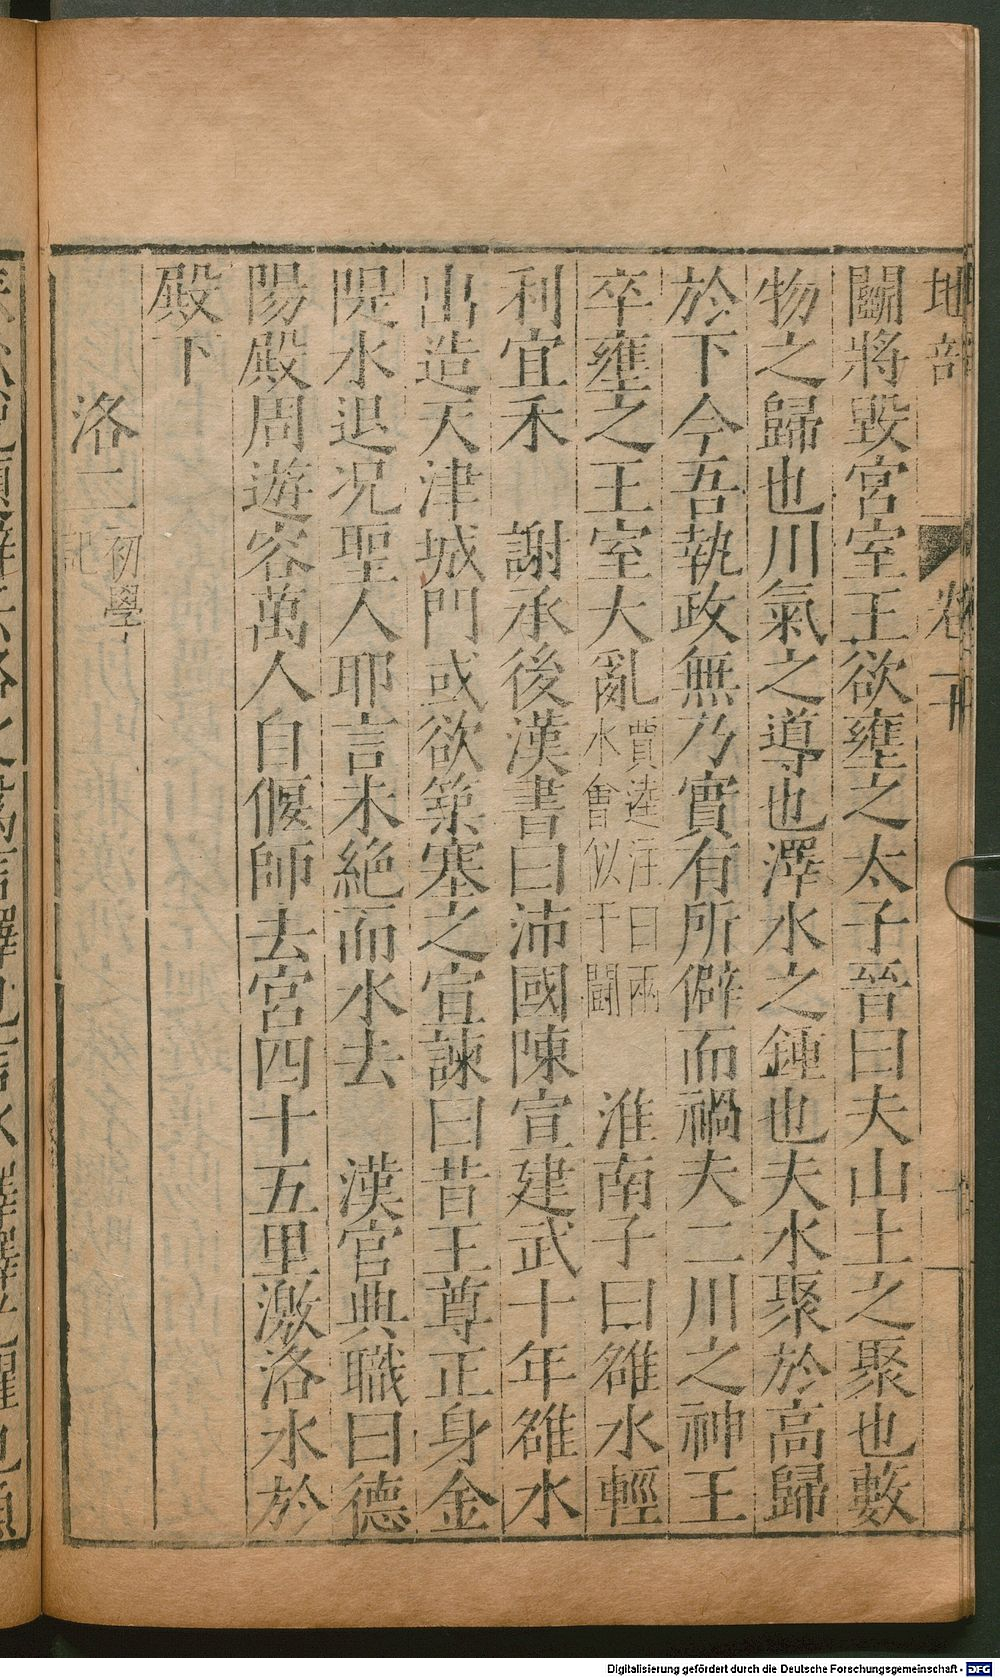 地部　卷二十
鬬將毀宮室王欲壅之太子晉曰夫山土之聚也藪
物之歸也川氣之導也澤水之鍾也夫水聚於高歸
於下今吾執政無乃實有所僻而禍夫二川之神王
卒壅之王室大亂賈逵注曰兩水會似于鬭　淮南子曰雒水輕
利宜禾　謝承後漢書曰沛國陳宣建武十年雒水
出造天津城門或欲築塞之宣諫曰昔王尊正身金
隄水退况聖人耶言未絕而水去　漢官典職曰德
陽殿周遊容萬人自偃師去宮四十五里激洛水於
殿下
洛二初學記
Digitalisierung gefördert durch die Deutsche Forschungsgemeinschaft - DFG